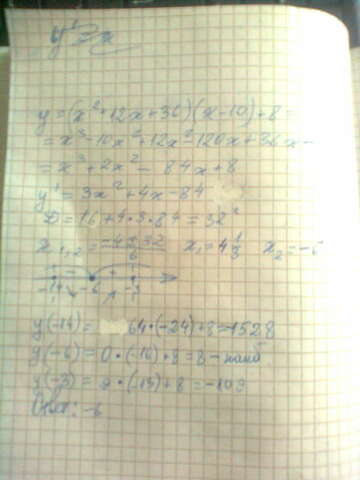 y' = x
y=(x²+12x+36)(x-10)+8
=x³-10x²+12x²-120x+36x-
=x³+2x²-84x+8
y'=3x²+4x-84
D=16+4·3·84=32²
x₁,₂=(-4±32)/6 x₁=4 2/3 x₂=-6
-14 - -6 + -3
y(-14)= 64·(-24)+8=-1528
y(-6)=0·(-16)+8=8-наиб
y(-3)=9·(-13)+8=-109
Ответ: -6